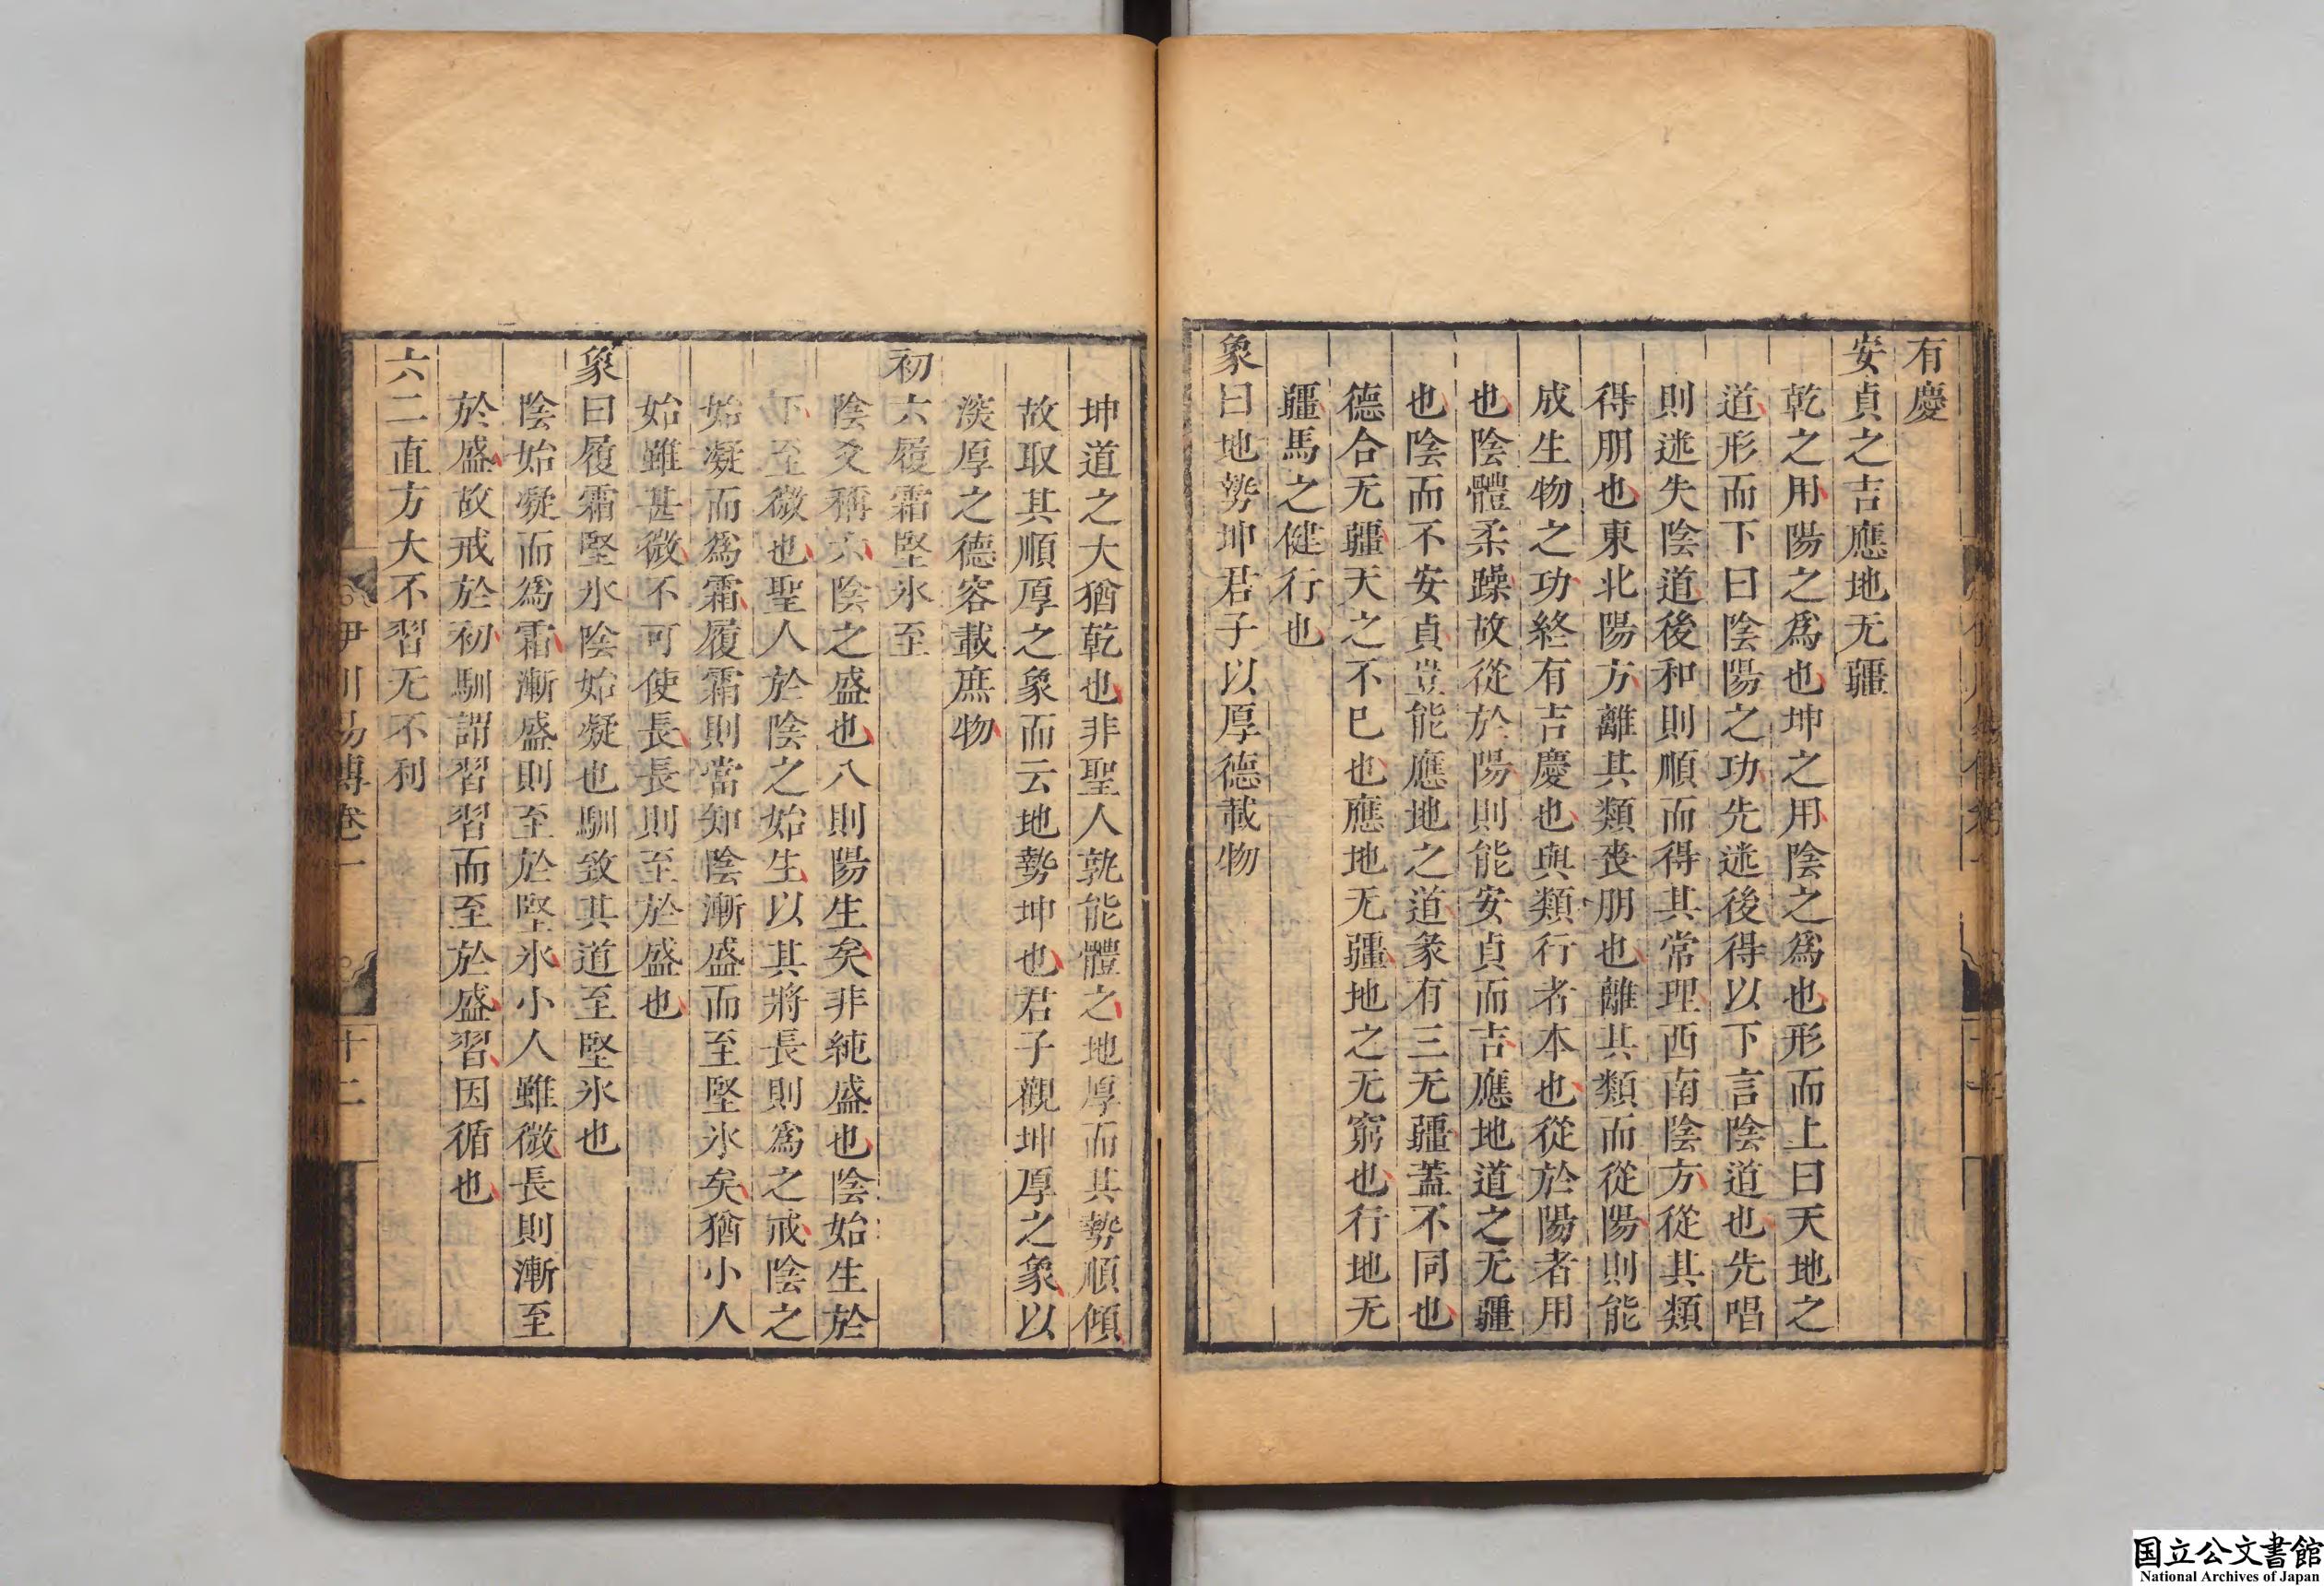 有慶
安貞之吉應地无疆
乾之用陽之爲也坤之用陰之爲也形而上曰天地之
道形而下曰陰陽之功先迷後得以下言陰道也先唱
則迷失陰道後和則順而得其常理西南陰方從其類
得朋也東北陽方離其類喪朋也離其類而從陽則能
成生物之功終有吉慶也與類行者本也從於陽者用
也陰體柔躁故從於陽則能安貞而吉應地道之无疆
也陰而不安貞豈能應地之道彖有三无疆蓋不同也
德合无疆天之不已也應地无疆地之无窮也行地无
疆馬之健行也
象曰地勢坤君子以厚德載物
坤道之大猶乾也非聖人孰能體之地厚而其勢順傾
故取其順厚之象而云地勢坤也君子觀坤厚之象以
深厚之德容載庶物
初六履霜堅氷至
陰爻稱六陰之盛也八則陽生矣非純盛也陰始生於
下至微也聖人於陰之始生以其將長則爲之戒陰之
始凝而爲霜履霜則當知陰漸盛而至堅氷矣猶小人
始雖甚微不可使長長則至於盛也
象曰履霜堅氷陰始凝也馴致其道至堅氷也
陰始凝而爲霜漸盛則至於堅氷小人雖微長則漸至
於盛故戒於初馴謂習習而至於盛習因循也
六二直方大不習无不利
伊川易傳卷一
十二
国立公文書館
National Archives of Japan